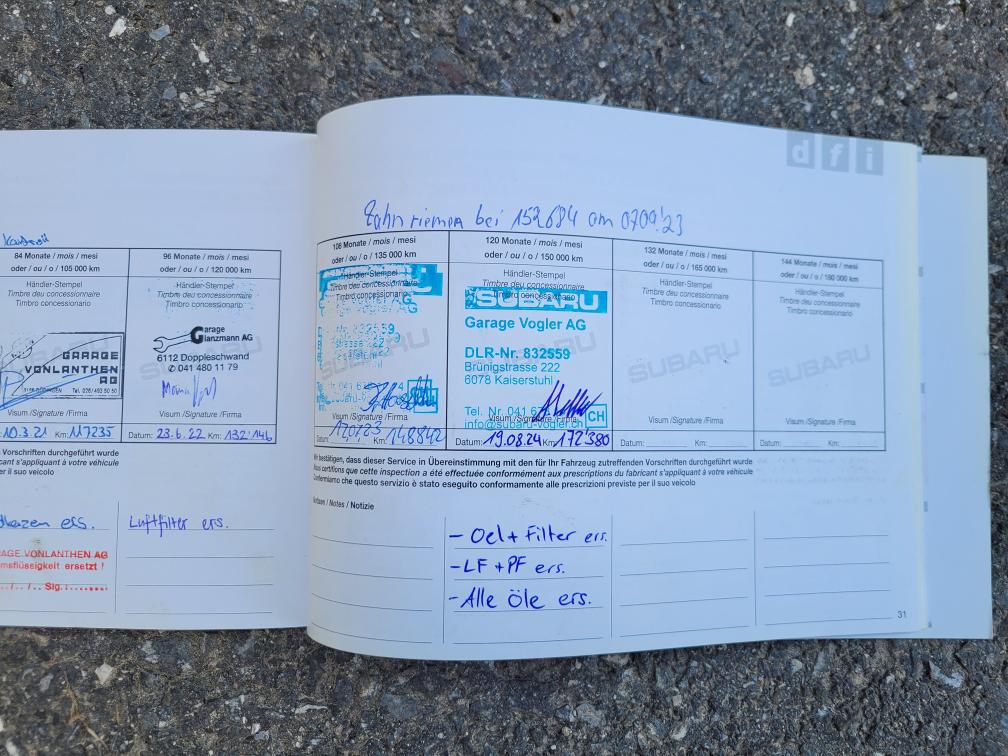 dfi
Zahnriemen bei 152684 am 07.09.23
84 Monate / mois / mesi
oder / ou / o / 105 000 km
Händler-Stempel
Timbre du concessionnaire
Timbro concessionario
GARAGE
VONLANTHEN
AG
Tel. 026 / 493 50 50
Visum /Signature /Firma
10.3.21 Km: 117235
96 Monate / mois / mesi
oder / ou / o / 120 000 km
Händler-Stempel
Timbre du concessionnaire
Timbro concessionario
SUBARU
Garage
Glanzmann AG
6112 Doppleschwand
✆ 041 480 11 79
Visum /Signature /Firma
Datum: 23.6.22 Km: 132'146
Vorschriften durchgeführt wurde
s'appliquant à votre véhicule
per il suo veicolo
Luftfilter ers.
GARAGE VONLANTHEN AG
ersetzt !
Sig.:
108 Monate / mois / mesi
oder / ou / o / 135 000 km
Händler-Stempel
Timbre du concessionnaire
Timbro concessionario
SUBARU
Visum /Signature /Firma
Datum: 12.07.23 Km: 148842
120 Monate / mois / mesi
oder / ou / o / 150 000 km
Händler-Stempel
Timbre du concessionnaire
Timbro concessionario
SUBARU
Garage Vogler AG
DLR-Nr. 832559
Brünigstrasse 222
6078 Kaiserstuhl
Tel. Nr. 041 67
Visum /Signature /Firma
info@subaru-vogler.ch
CH
Datum: 19.08.24 Km: 172'380
132 Monate / mois / mesi
oder / ou / o / 165 000 km
Händler-Stempel
Timbre du concessionnaire
Timbro concessionario
SUBARU
Visum /Signature /Firma
Datum: Km:
144 Monate / mois / mesi
oder / ou / o / 180 000 km
Händler-Stempel
Timbre du concessionnaire
Timbro concessionario
SUBARU
Visum /Signature /Firma
Datum: Km:
Wir bestätigen, dass dieser Service in Übereinstimmung mit den für Ihr Fahrzeug zutreffenden Vorschriften durchgeführt wurde
Nous certifions que cette inspection a été effectuée conformément aux prescriptions du fabricant s'appliquant à votre véhicule
Confermiamo che questo servizio è stato eseguito conformemente alle prescrizioni previste per il suo veicolo
Notizen / Notes / Notizie
- Oel + Filter ers.
- LF + PF ers.
- Alle Öle ers.
31